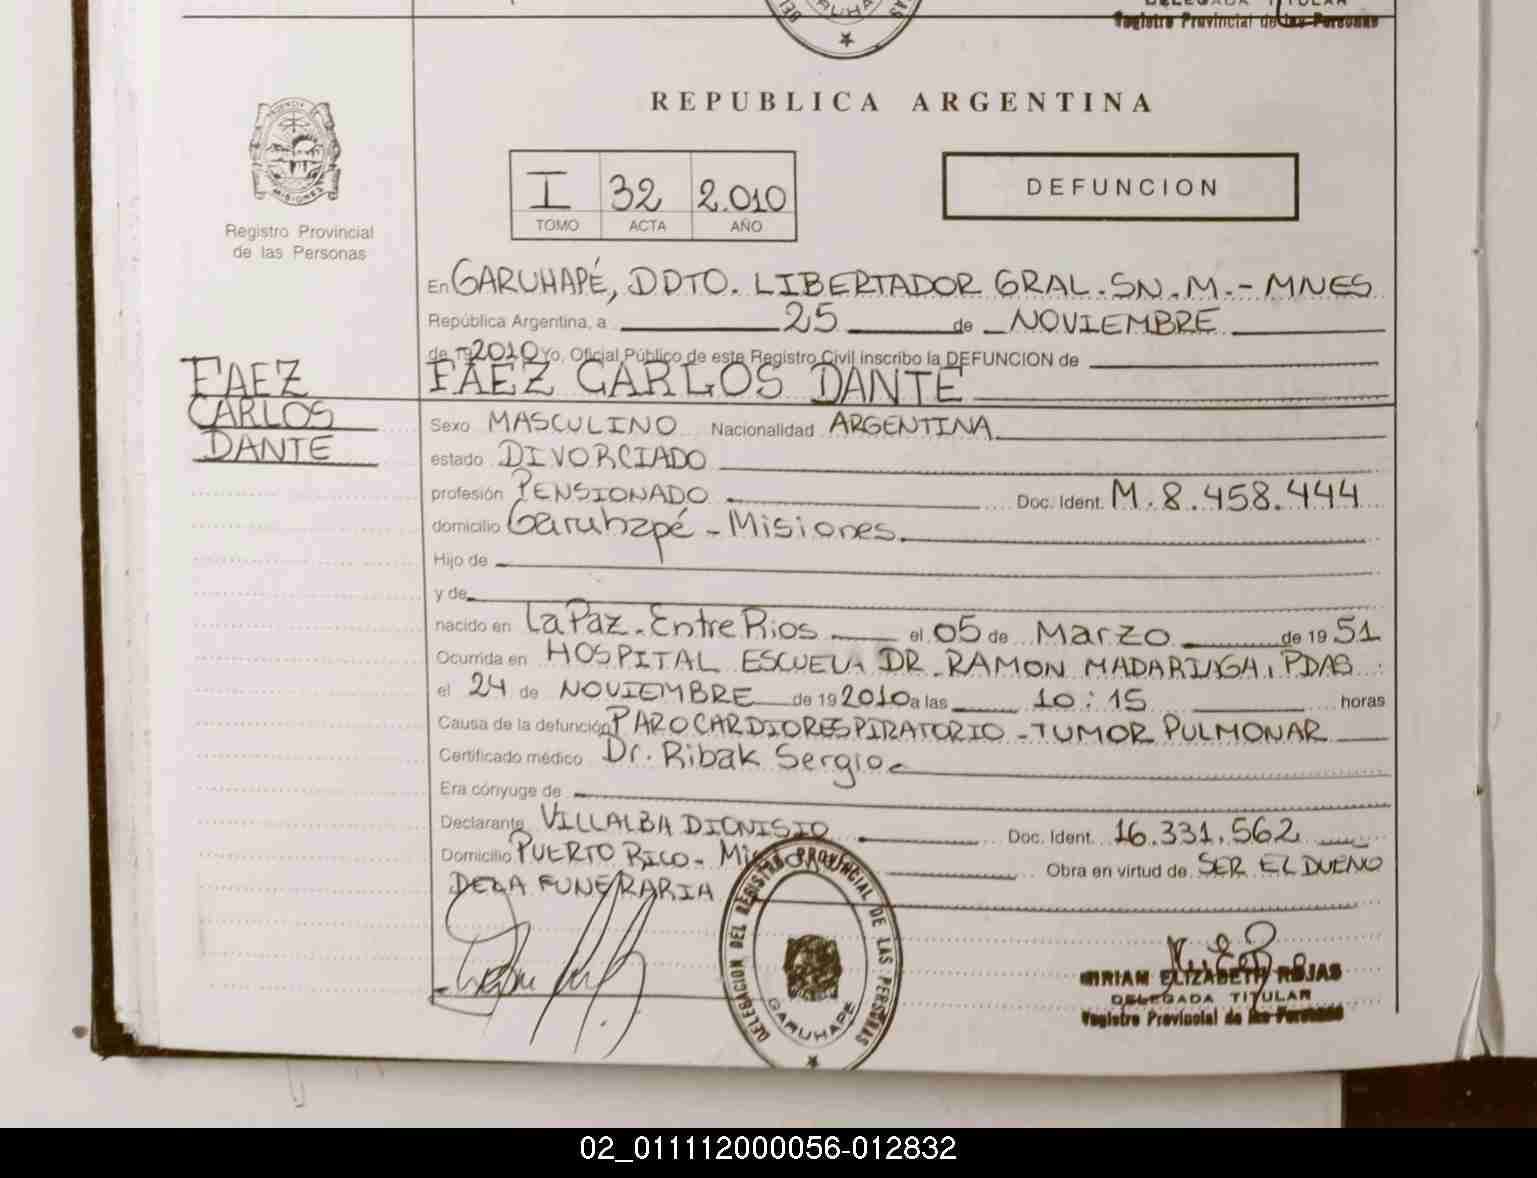 DELEGADA TITULAR
Registro Provincial de las Personas
GARUHAPE
REPUBLICA ARGENTINA
PROVINCIA DE MISIONES
Registro Provincial
de las Personas
I 32 2.010
TOMO ACTA AÑO
DEFUNCION
En GARUHAPÉ, DPTO. LIBERTADOR GRAL. SN. M. - MNES
República Argentina, a 25 de NOVIEMBRE
de 19 2010 Yo, Oficial Público de este Registro Civil inscribo la DEFUNCION de
FAEZ CARLOS DANTE
FAEZ
CARLOS
DANTE
Sexo MASCULINO Nacionalidad ARGENTINA
estado DIVORCIADO
profesión PENSIONADO Doc. Ident. M. 8.458.444
domicilio Garuhapé - Misiones.
Hijo de
y de
nacido en La Paz - Entre Rios el 05 de Marzo de 19 51
Ocurrida en HOSPITAL ESCUELA DR. RAMON MADARIAGA, PDAS
el 24 de NOVIEMBRE de 19 2010 a las 10:15 horas
Causa de la defunción PARO CARDIORESPIRATORIO - TUMOR PULMONAR
Certificado médico Dr. Ribak Sergio
Era cónyuge de
Declarante VILLALBA DIONISIO Doc. Ident. 16.331.562
Domicilio PUERTO RICO - Misiones Obra en virtud de SER EL DUEÑO
DE LA FUNERARIA
DELEGACION DEL REGISTRO PROVINCIAL DE LAS PERSONAS
GARUHAPE
MIRIAM ELIZABETH ROJAS
DELEGADA TITULAR
Registro Provincial de las Personas
02_011112000056-012832